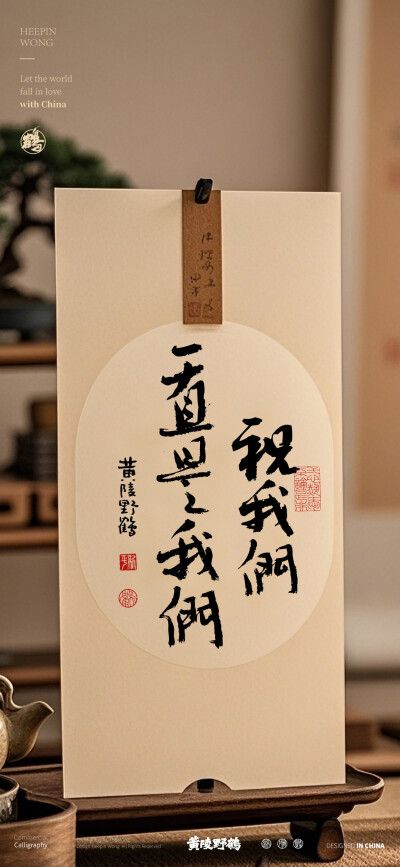 HEEPIN
WONG
Let the world
fall in love
with China
祝我們
一直是我們
黄陵野鶴
Commercial
Calligraphy
黄陵野鶴
DESIGNED IN CHINA